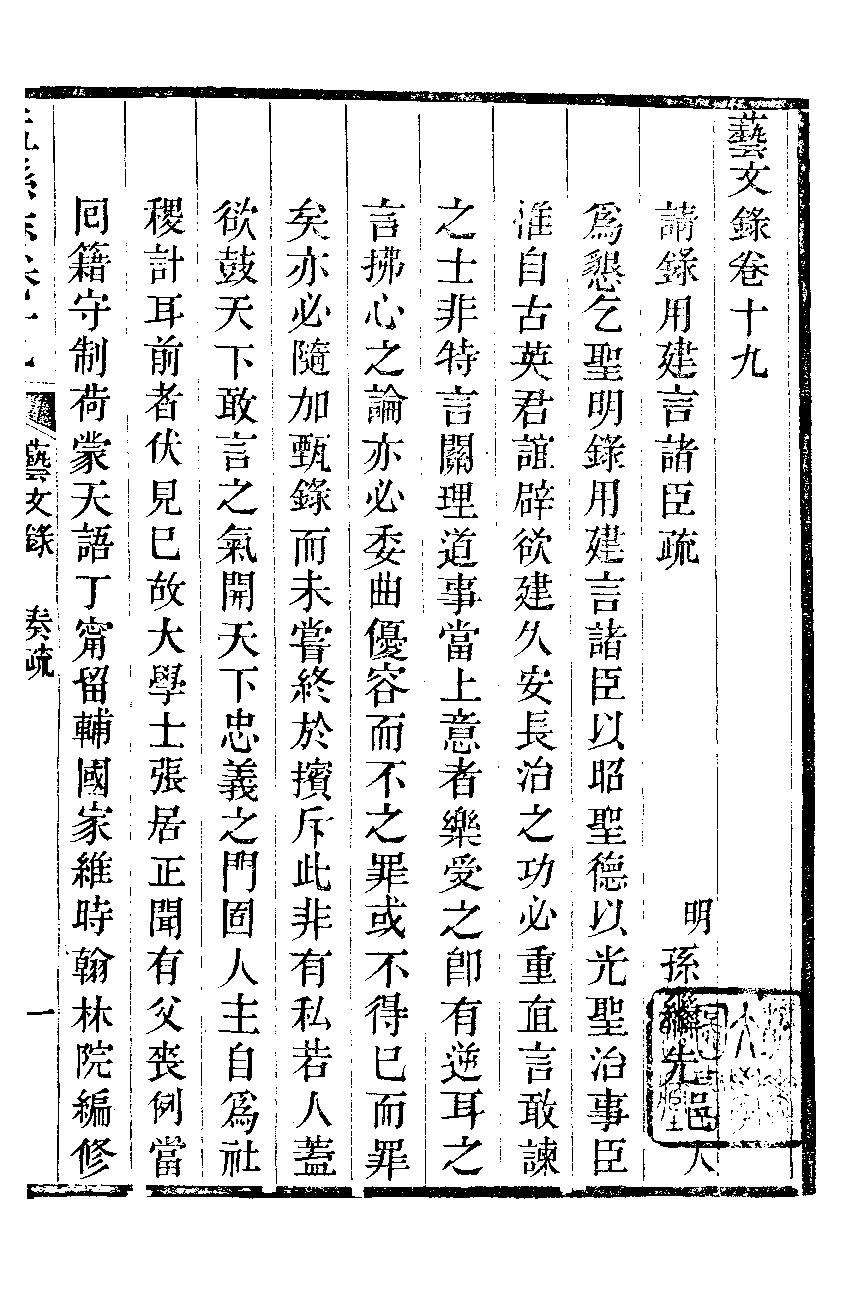 藝文錄卷十九
請錄用建言諸臣疏
明 孫繼先 邑人
爲懇乞聖明錄用建言諸臣以昭聖德以光聖治事臣
淮自古英君誼辟欲建久安長治之功必重直言敢諫
之士非特言關理道事當上意者樂受之卽有逆耳之
言拂心之論亦必委曲優容而不之罪或不得已而罪
矣亦必隨加甄錄而未嘗終於擯斥此非有私若人蓋
欲鼓天下敢言之氣開天下忠義之門固人主自爲社
稷計耳前者伏見已故大學士張居正聞有父喪例當
回籍守制荷蒙天語丁甯留輔國家維時翰林院編修
藝文錄 奏疏 一